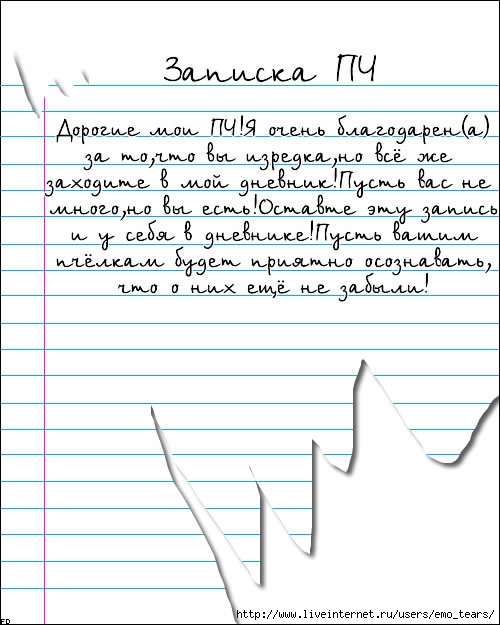 Записка ПЧ
Дорогие мои ПЧ!Я очень благодарен(а)
за то,что вы изредка,но всё же
заходите в мой дневник!Пусть вас не
много,но вы есть!Оставте эту запись
и у себя в дневнике!Пусть вашим
пчёлкам будет приятно осознавать,
что о них ещё не забыли!
http://www.liveinternet.ru/users/emo_tears/
FD